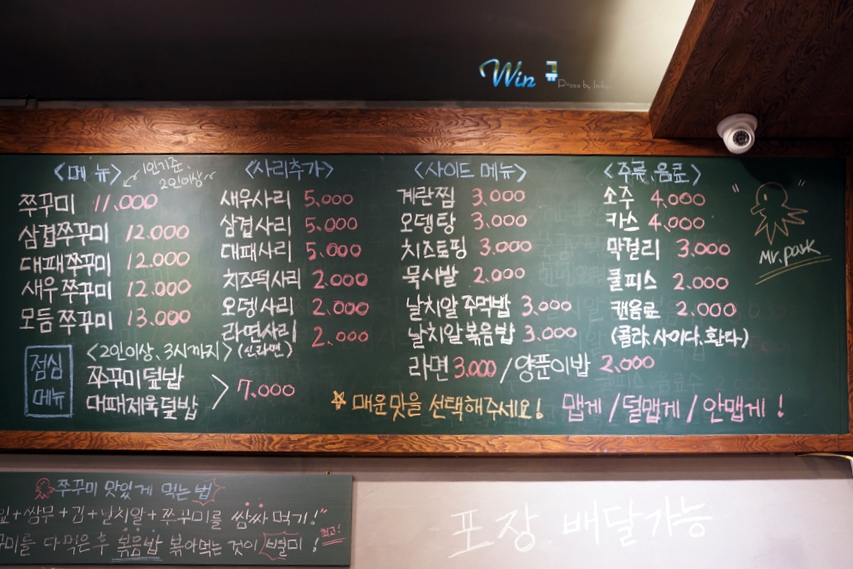 Win
<메뉴> 1인기준, 2인이상~
쭈꾸미 11,000
삼겹쭈꾸미 12.000
대패쭈꾸미 12.000
새우쭈꾸미 12.000
모듬쭈꾸미 13.000
<사리추가>
새우사리 5,000
삼겹사리 5.000
대패사리 5.000
치즈떡사리 2.000
오뎅사리 2.000
라면사리 2.000
(신라면)
<사이드 메뉴>
계란찜 3.000
오뎅탕 3.000
치즈토핑 3.000
묵사발 2.000
날치알 주먹밥 3.000
날치알 볶음밥 3.000
라면 3.000 / 양푼이밥 2.000
<주류, 음료>
소주 4,000
카스 4,000
막걸리 3.000
쿨피스 2.000
캔음료 2.000
(콜라, 사이다, 환타)
" "
Mr. park
점심 메뉴
<2인이상, 3시까지>
쭈꾸미덮밥
대패제육덮밥 > 7,000
☆ 매운맛을 선택해주세요! 맵게 / 덜맵게 / 안맵게 !
쭈꾸미 맛있게 먹는 법
+쌈무+김+날치알+쭈꾸미를 쌈싸 먹기!"
꾸미를 다먹은 후 볶음밥 볶아먹는 것이 별미! 최고!
포장. 배달가능